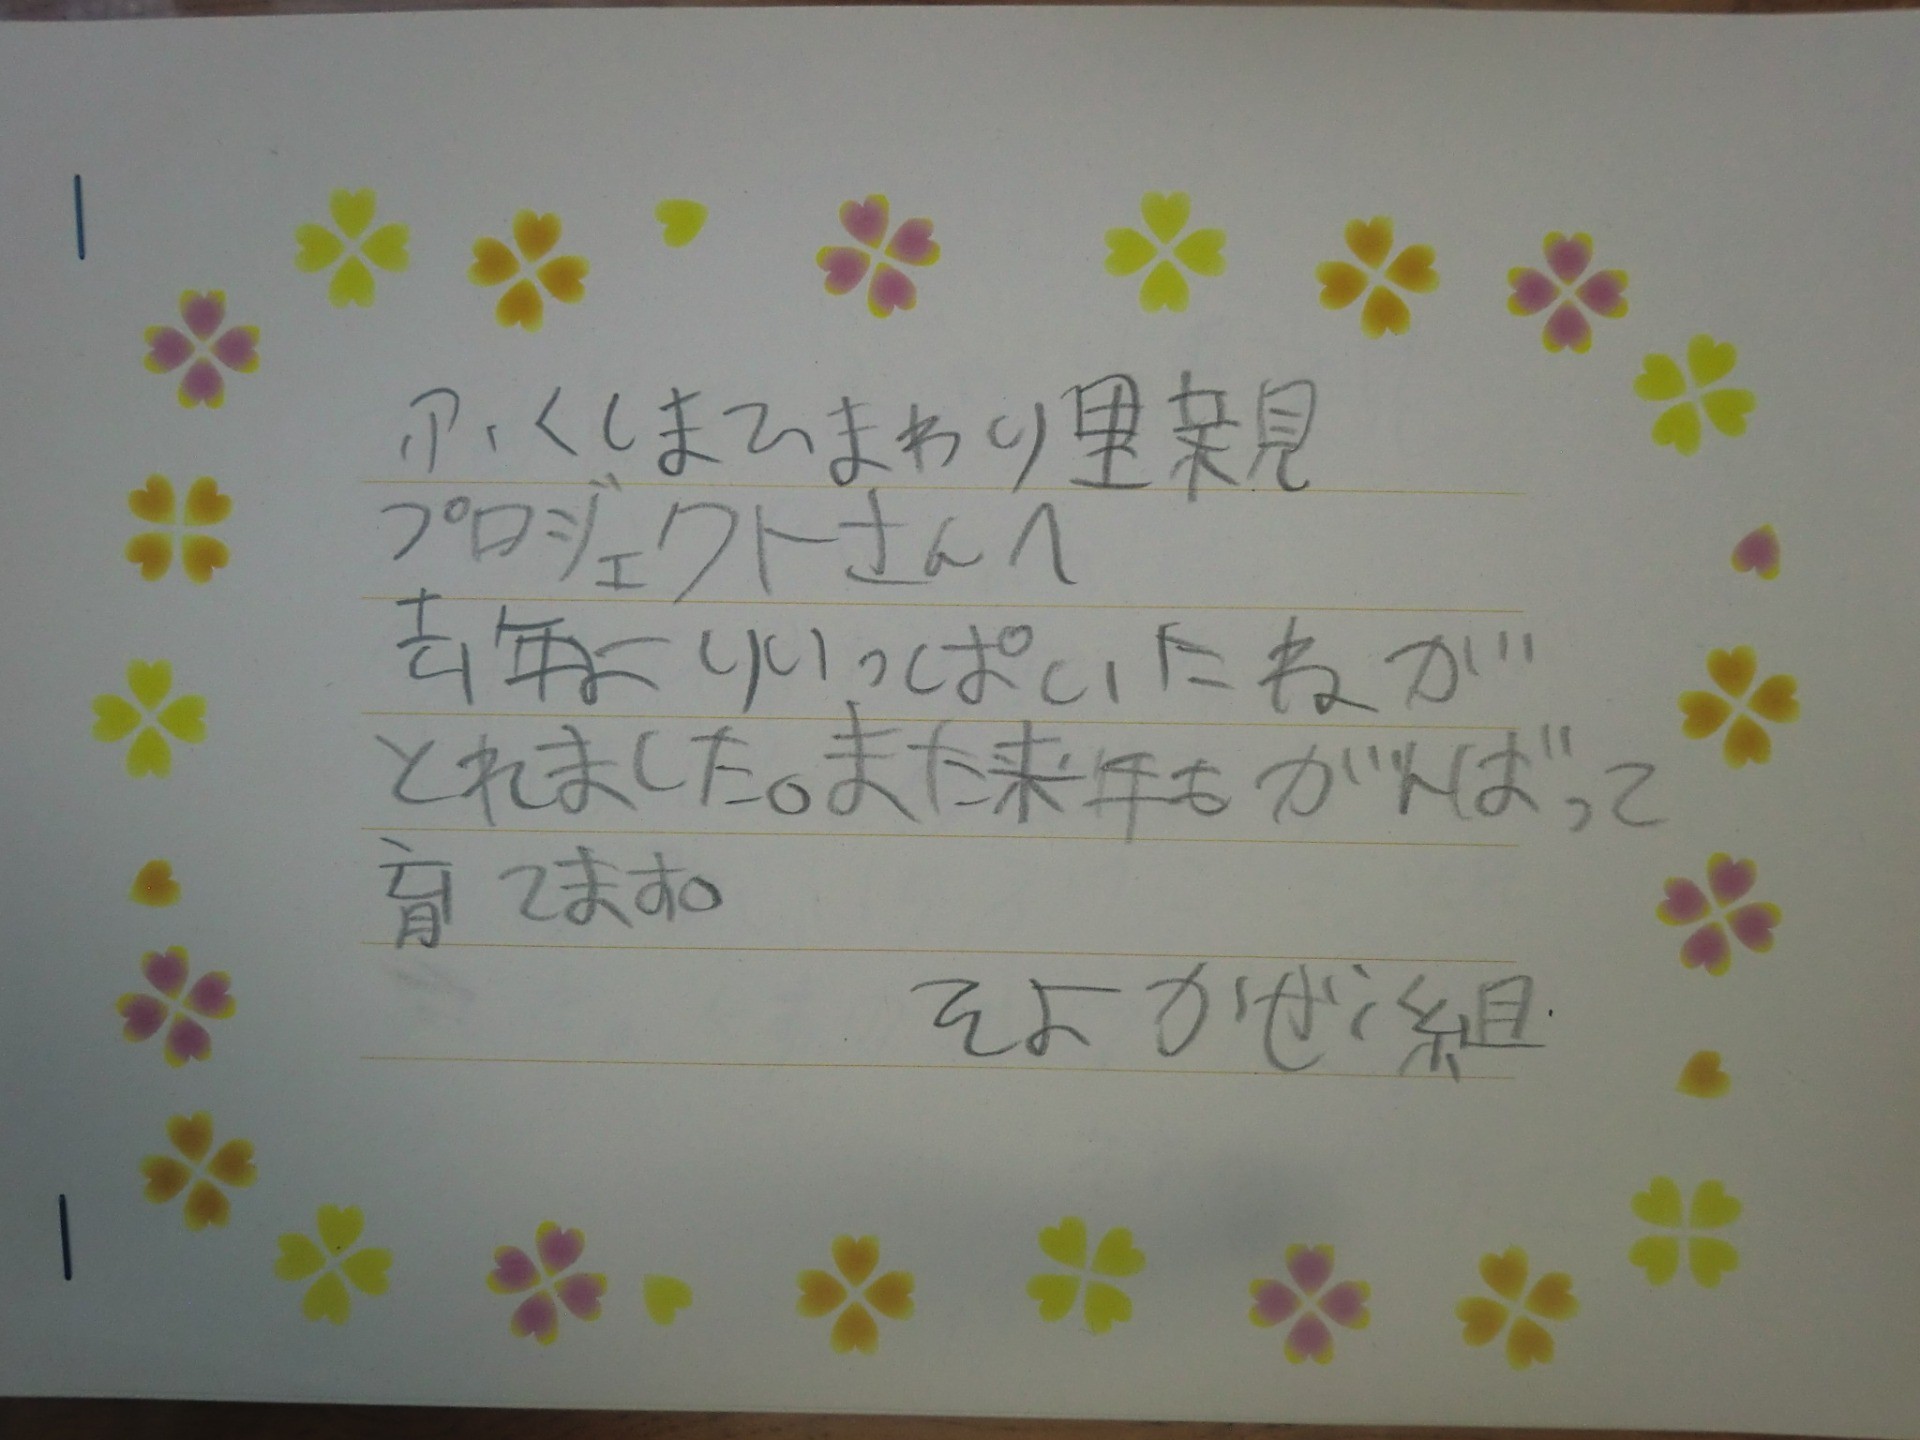 ふくしまひまわり里親
プロジェクトさんへ
去年よりいっぱいたねが
とれました。また来年もがんばって
育てます。
そよかぜ組